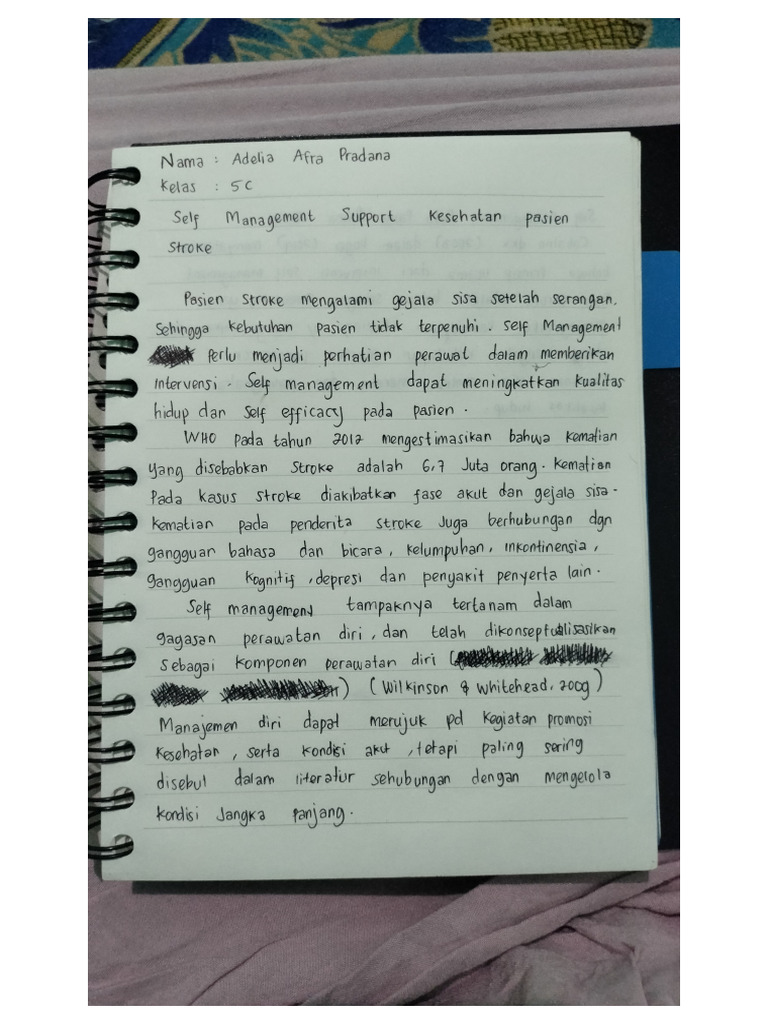 Nama : Adelia Afra Pradana
Kelas : 5C
Self Management Support Kesehatan pasien
Stroke
Pasien Stroke mengalami gejala sisa setelah serangan.
Sehingga kebutuhan pasien tidak terpenuhi. Self Management
Perlu menjadi perhatian perawat dalam memberikan
Intervensi. Self management dapat meningkatkan kualitas
hidup dan Self efficacy pada pasien.
WHO pada tahun 2012 mengestimasikan bahwa kematian
yang disebabkan Stroke adalah 6,7 Juta orang. Kematian
Pada kasus stroke diakibatkan fase akut dan gejala sisa.
Kematian pada penderita stroke Juga berhubungan dgn
gangguan bahasa dan bicara, kelumpuhan, inkontinensia,
gangguan Kognitif, depresi dan penyakit penyerta lain.
Self management tampaknya tertanam dalam
gagasan perawatan diri, dan telah dikonseptualisasikan
sebagai komponen perawatan diri (
) (Wilkinson & whitehead, 2009)
Manajemen diri dapat merujuk pd kegiatan promosi
kesehatan, serta kondisi akut, tetapi paling sering
disebut dalam literatur sehubungan dengan mengelola
kondisi Jangka Panjang.